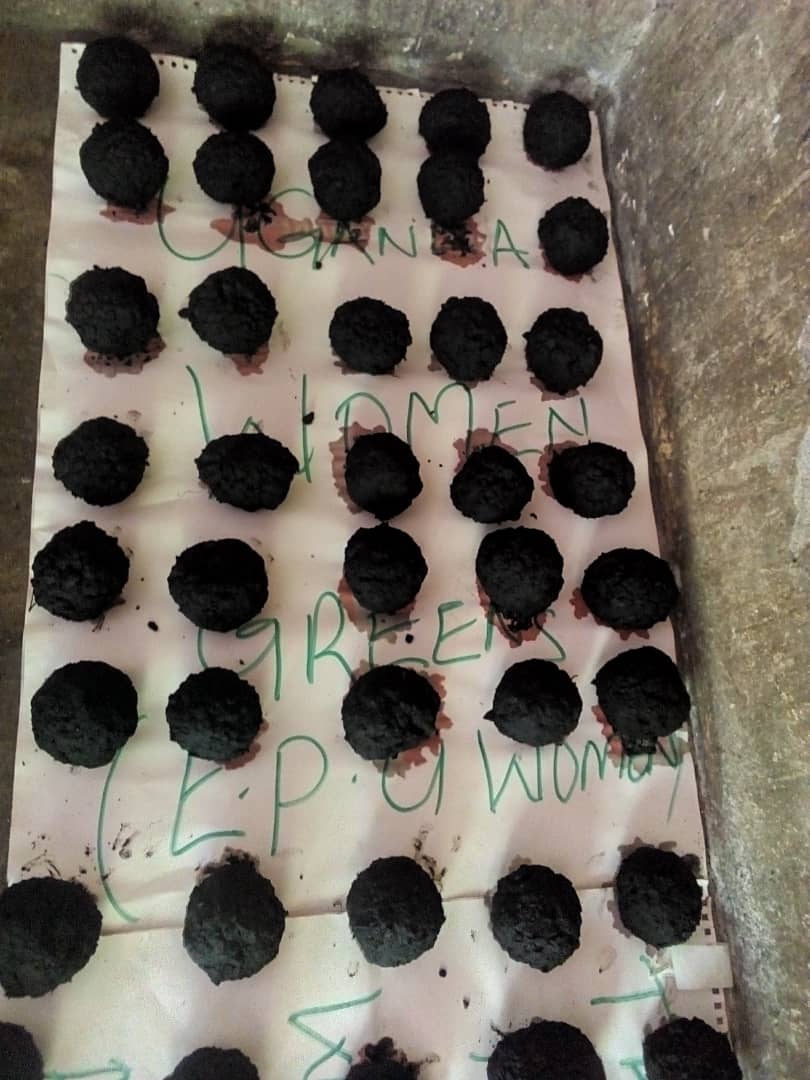 UGANDA
WOMEN
GREENS
(E.P.U WOMEN)